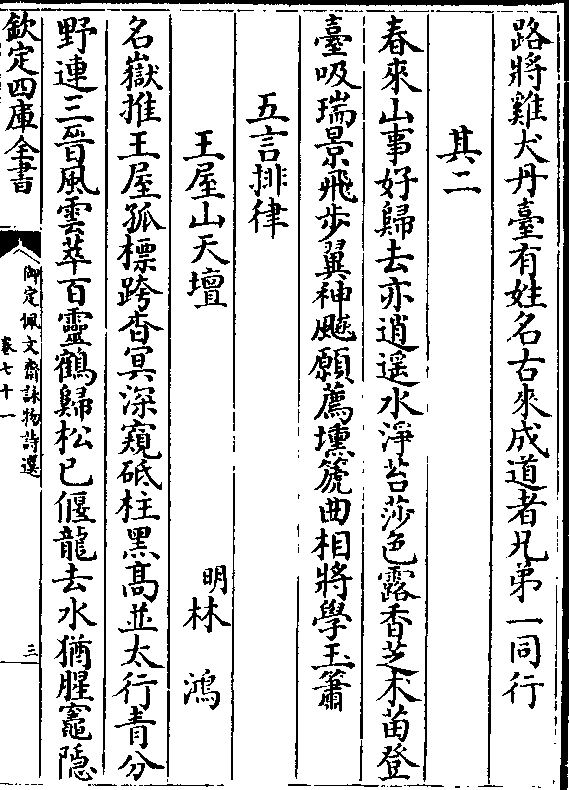 路將雞犬丹臺有姓名古來成道者兄弟一同行
其二
春來山事好歸去亦逍遥水淨苔莎色露香芝朮苗登
臺吸瑞景飛步翼神飈願薦壎箎曲相將學玉簫
五言排律
王屋山天壇
明林鴻
名嶽推王屋孤標跨杳冥深窺砥柱黑髙並太行青分
野連三晉風雲萃百靈鶴歸松已偃龍去水猶腥竈隠
欽定四庫全書
御定佩文齋詠物詩選
卷七十一
三